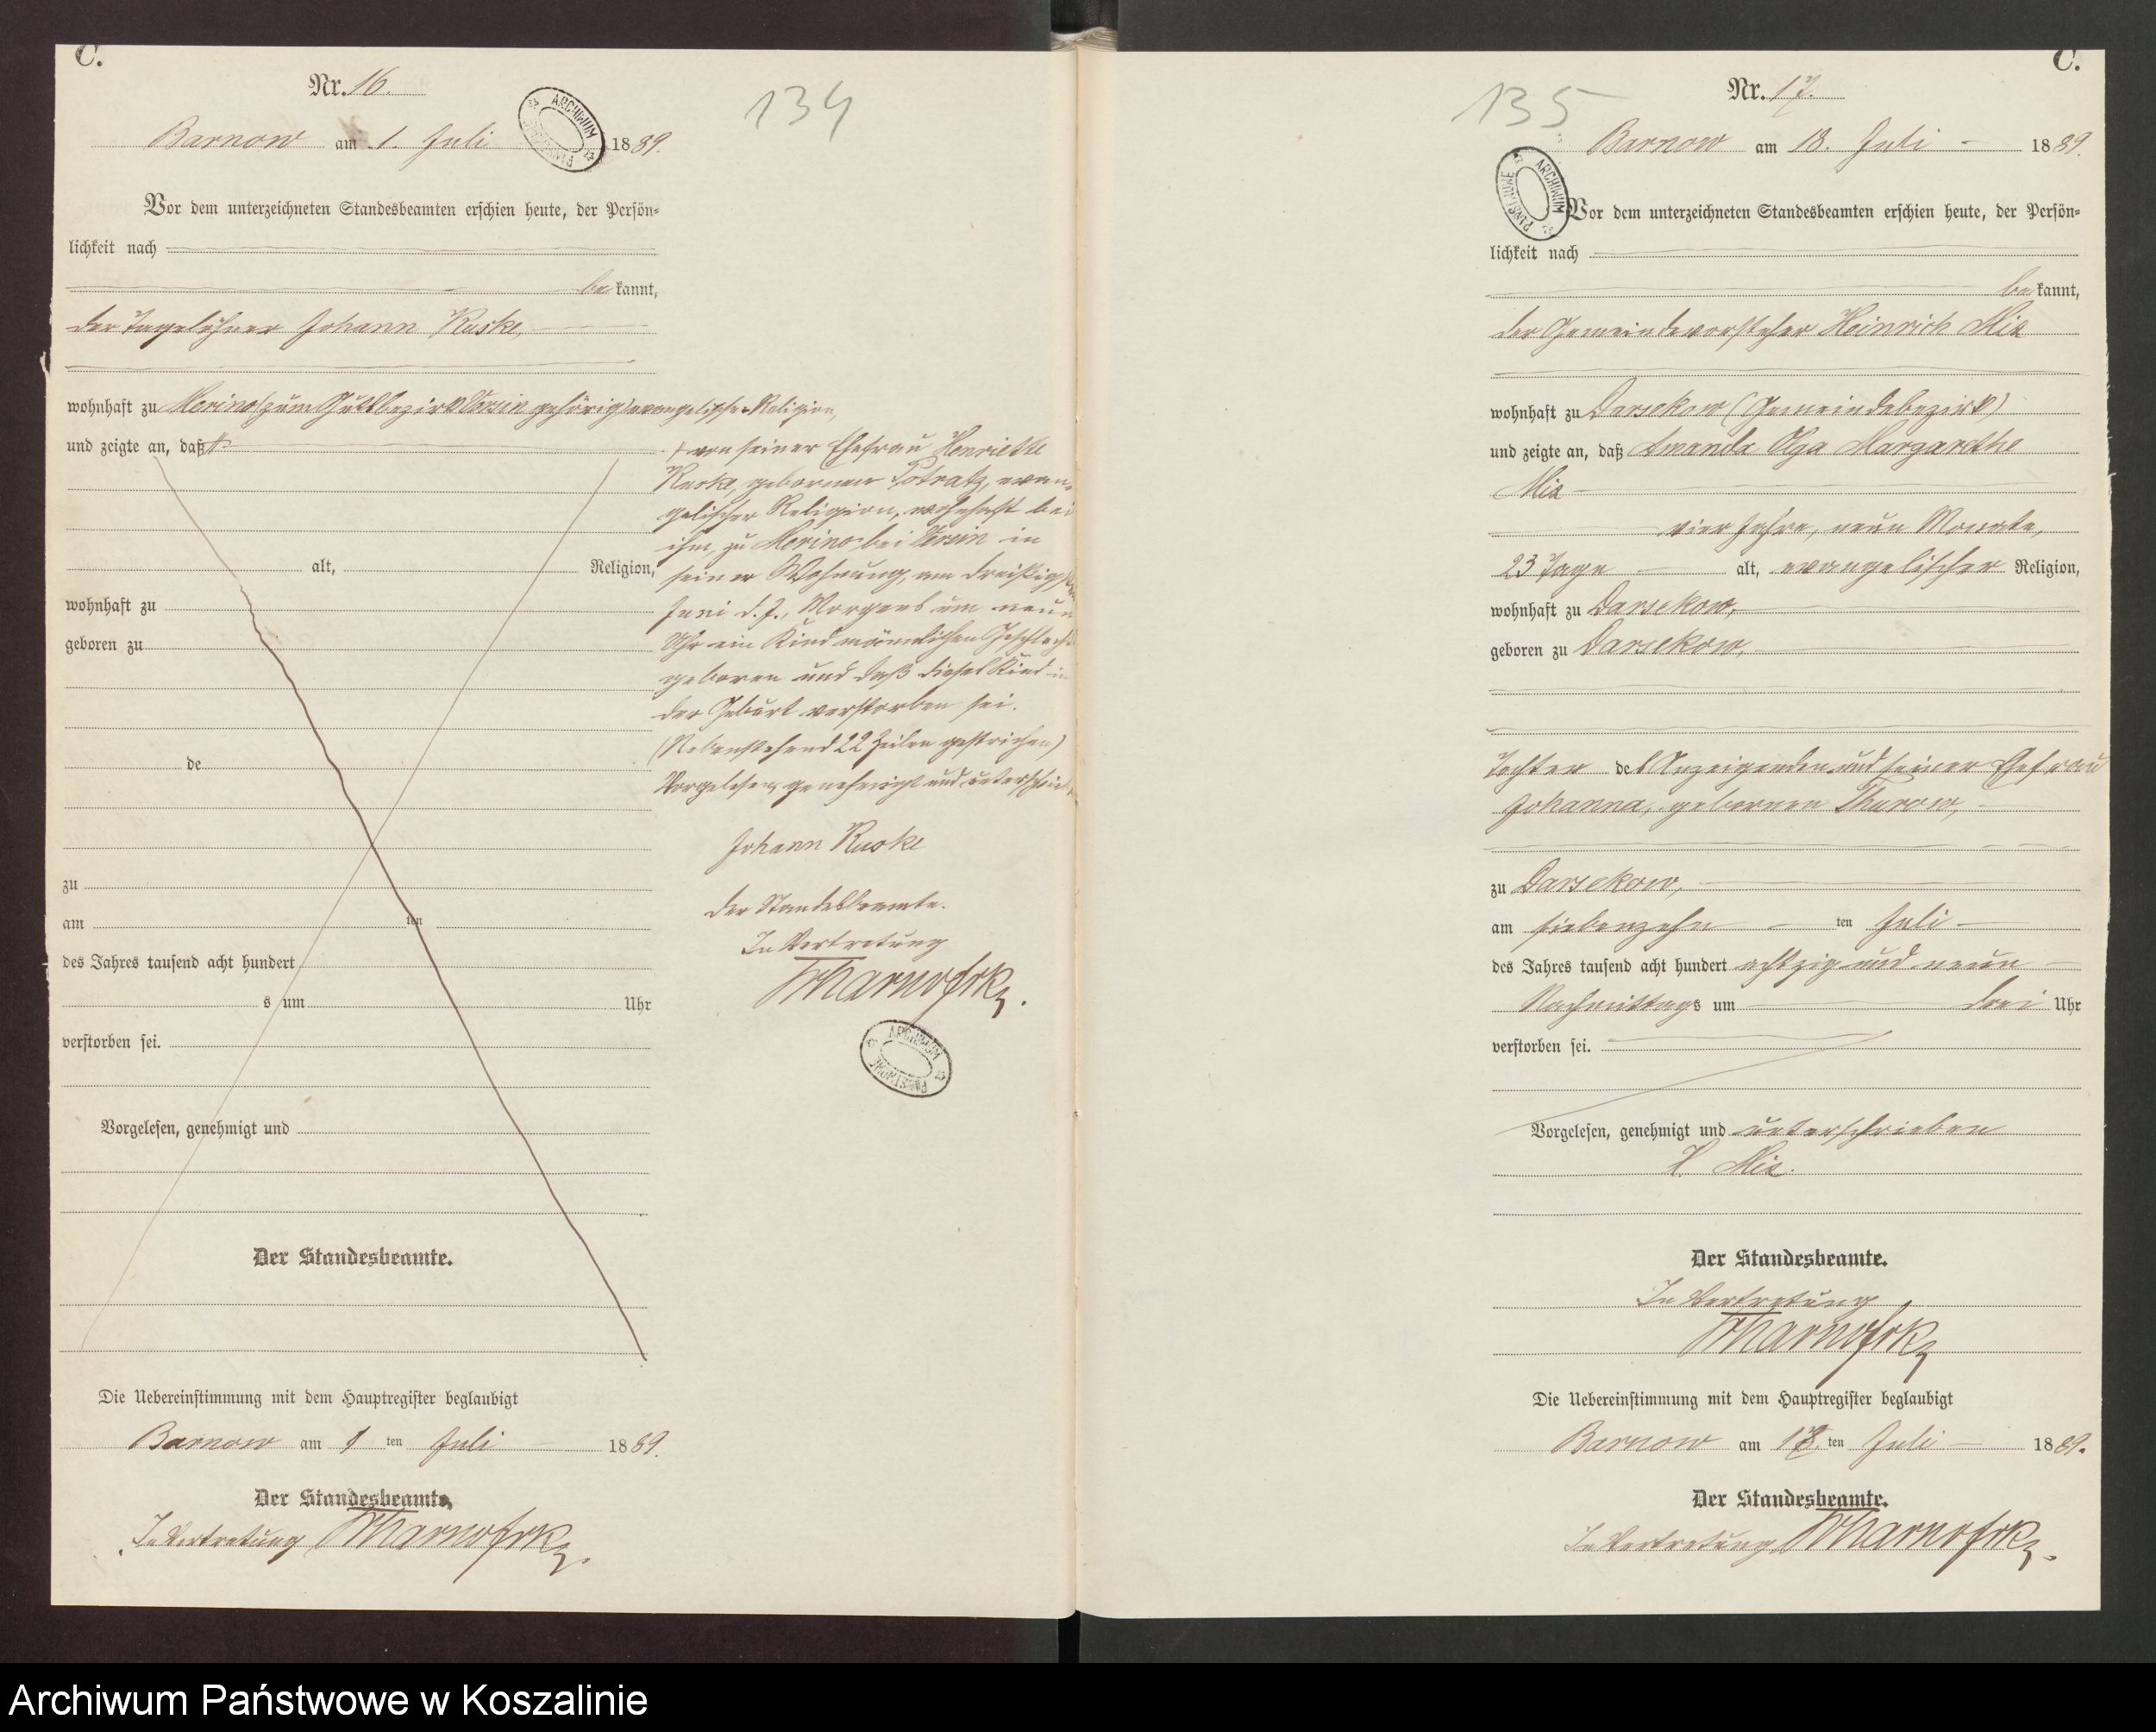 C.
Nr. 16.
134
Barnow am 1. Juli 1889.
Vor dem unterzeichneten Standesbeamten erschien heute, der Persön-
lichkeit nach
bekannt,
der Tagelöhner Johann Kuske,
wohnhaft zu Merino (zum Gutsbezirk Versin gehörig) evangelischer Religion,
und zeigte an, daß
von seiner Ehefrau Henriette
Kuske, gebornen Potratz, evan-
gelischer Religion, wohnhaft bei
ihm, zu Merino bei Versin in
alt, Religion,
seiner Wohnung, am dreißigsten
wohnhaft zu
Juni d. J., Morgens um neun
geboren zu
Uhr ein Kind männlichen Geschlechts
geboren und daß dieses Kind in
der Geburt verstorben sei.
(Nebenstehend 22 Zeilen gestrichen)
de
Vorgelesen, genehmigt und unterschrieben
Johann Kuske
zu
Der Standesbeamte.
am ten
In Vertretung
des Jahres tausend acht hundert
s um Uhr
verstorben sei.
ARCHIWUM PAŃSTWOWE
Vorgelesen, genehmigt und
Der Standesbeamte.
Die Uebereinstimmung mit dem Hauptregister beglaubigt
Barnow am 1 ten Juli 1889.
Der Standesbeamte.
In Vertretung
C.
Nr. 17.
135
Barnow am 18. Juli 1889.
ARCHIWUM PAŃSTWOWE
Vor dem unterzeichneten Standesbeamten erschien heute, der Persön-
lichkeit nach
bekannt,
der Gemeindevorsteher Heinrich Mix
wohnhaft zu Darsekow (Gemeindebezirk)
und zeigte an, daß Amanda Olga Margarethe
Mix
vier Jahre, neun Monate,
23 Tage alt, evangelischer Religion,
wohnhaft zu Darsekow,
geboren zu Darsekow,
Tochter des Anzeigenden und seiner Ehefrau
Johanna, gebornen Thurow,
zu Darsekow,
am siebenzehn ten Juli
des Jahres tausend acht hundert achtzig und neun
Nachmittags um drei Uhr
verstorben sei.
Vorgelesen, genehmigt und unterschrieben
H. Mix.
Der Standesbeamte.
In Vertretung
Die Uebereinstimmung mit dem Hauptregister beglaubigt
Barnow am 18. ten Juli 1889.
Der Standesbeamte.
In Vertretung
Archiwum Państwowe w Koszalinie